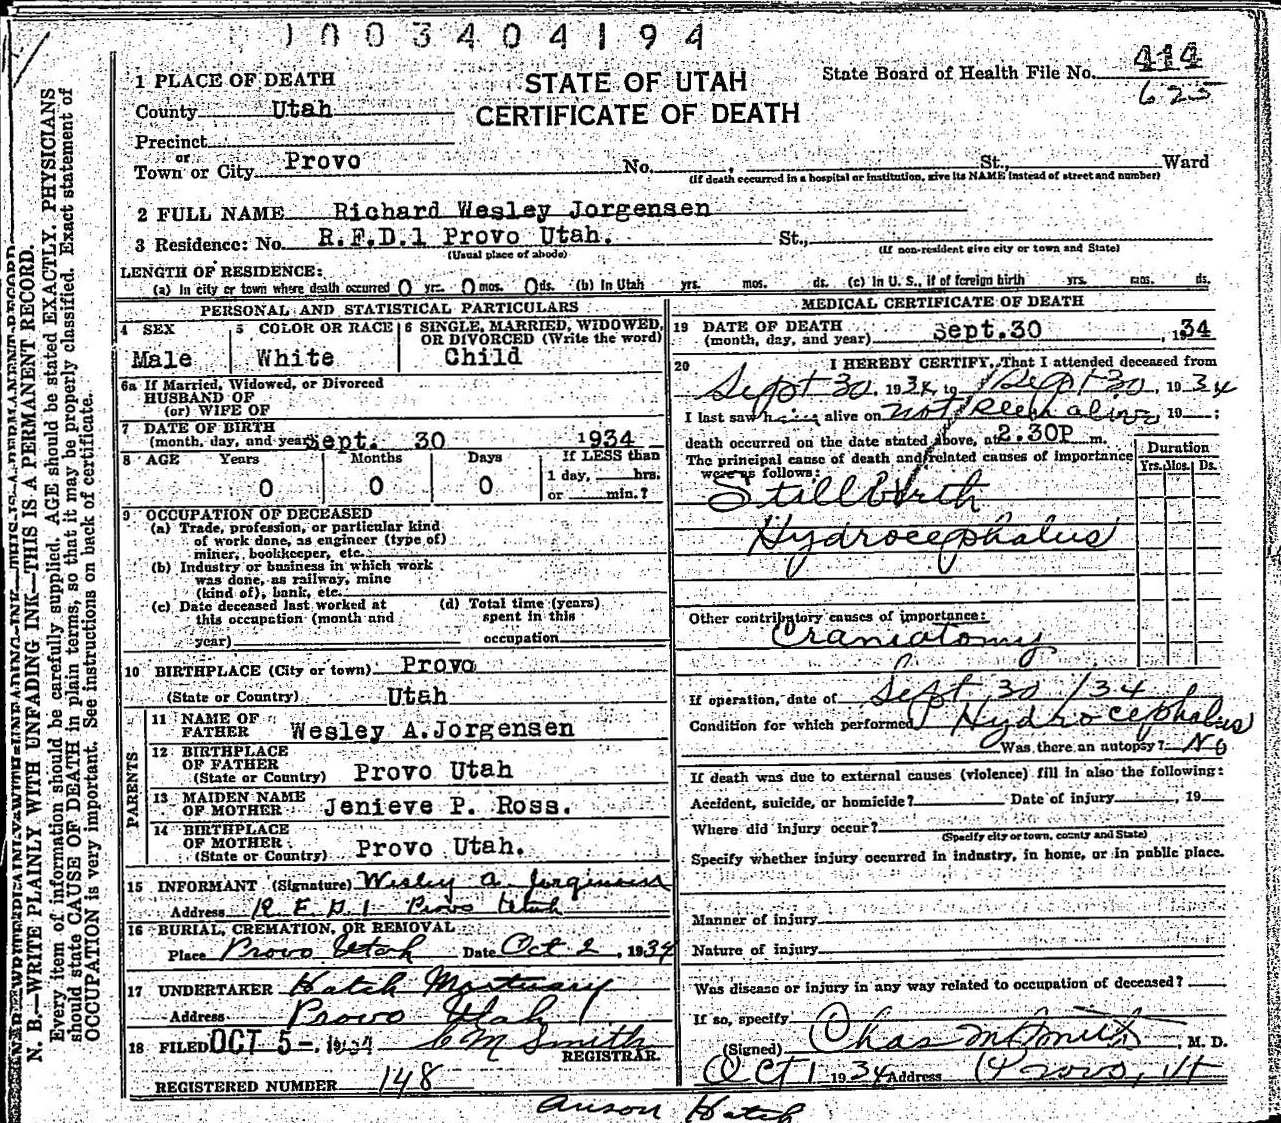 1003404194
STATE OF UTAH
CERTIFICATE OF DEATH
State Board of Health File No. 414
625
1 PLACE OF DEATH
County Utah
Precinct
or
Town or City Provo No. , St., Ward
(If death occurred in a hospital or institution, give its NAME instead of street and number)
2 FULL NAME Richard Wesley Jorgensen
3 Residence: No. R.F.D.1 Provo Utah. St.,
(Usual place of abode) (If non-resident give city or town and State)
LENGTH OF RESIDENCE:
(a) In city or town where death occurred 0 yrs. 0 mos. 0 ds. (b) In Utah yrs. mos. ds. (c) In U. S., if of foreign birth yrs. mos. ds.
PERSONAL AND STATISTICAL PARTICULARS
4 SEX
Male
5 COLOR OR RACE
White
6 SINGLE, MARRIED, WIDOWED,
OR DIVORCED (Write the word)
Child
6a If Married, Widowed, or Divorced
HUSBAND OF
(or) WIFE OF
7 DATE OF BIRTH
(month, day, and year) Sept. 30 1934
8 AGE Years Months Days If LESS than
0 0 0 1 day, hrs.
or min.?
9 OCCUPATION OF DECEASED
(a) Trade, profession, or particular kind
of work done, as engineer (type of)
miner, bookkeeper, etc.
(b) Industry or business in which work
was done, as railway, mine
(kind of), bank, etc.
(c) Date deceased last worked at
this occupation (month and
year)
(d) Total time (years)
spent in this
occupation
10 BIRTHPLACE (City or town) Provo
(State or Country) Utah
PARENTS
11 NAME OF
FATHER Wesley A.Jorgensen
12 BIRTHPLACE
OF FATHER
(State or Country) Provo Utah
13 MAIDEN NAME
OF MOTHER Jenieve P. Ross.
14 BIRTHPLACE
OF MOTHER
(State or Country) Provo Utah.
15 INFORMANT (Signature) Wesley A. Jorgensen
Address R F D 1 Provo Utah
16 BURIAL, CREMATION, OR REMOVAL
Place Provo Utah Date Oct 2, 1934
17 UNDERTAKER Hatch Mortuary
Address Provo Utah
18 FILED OCT 5-, 1934 C M Smith
REGISTRAR.
REGISTERED NUMBER 148
MEDICAL CERTIFICATE OF DEATH
19 DATE OF DEATH
(month, day, and year) Sept.30 , 1934
20 I HEREBY CERTIFY, That I attended deceased from
Sept 30. 1934, to Sept 30, 1934
I last saw him alive on not seen alive, 19 ;
death occurred on the date stated above, at 2.30P m.
The principal cause of death and related causes of importance
were as follows:
Duration
Yrs. Mos. Ds.
Stillbirth
Hydrocephalus
Other contributory causes of importance:
Craniotomy
If operation, date of Sept 30 / 34
Condition for which performed Hydrocephalus
Was there an autopsy? No
If death was due to external causes (violence) fill in also the following:
Accident, suicide, or homicide? Date of injury , 19
Where did injury occur?
(Specify city or town, county and State)
Specify whether injury occurred in industry, in home, or in public place.
Manner of injury
Nature of injury
Was disease or injury in any way related to occupation of deceased?
If so, specify
(Signed) Chas M Smith, M. D.
Oct 1 1934 Address Provo, Ut
Anson Hatch
N. B.—WRITE PLAINLY WITH UNFADING INK—THIS IS A PERMANENT RECORD.
Every item of information should be carefully supplied. AGE should be stated EXACTLY. PHYSICIANS
should state CAUSE OF DEATH in plain terms, so that it may be properly classified. Exact statement of
OCCUPATION is very important. See instructions on back of certificate.